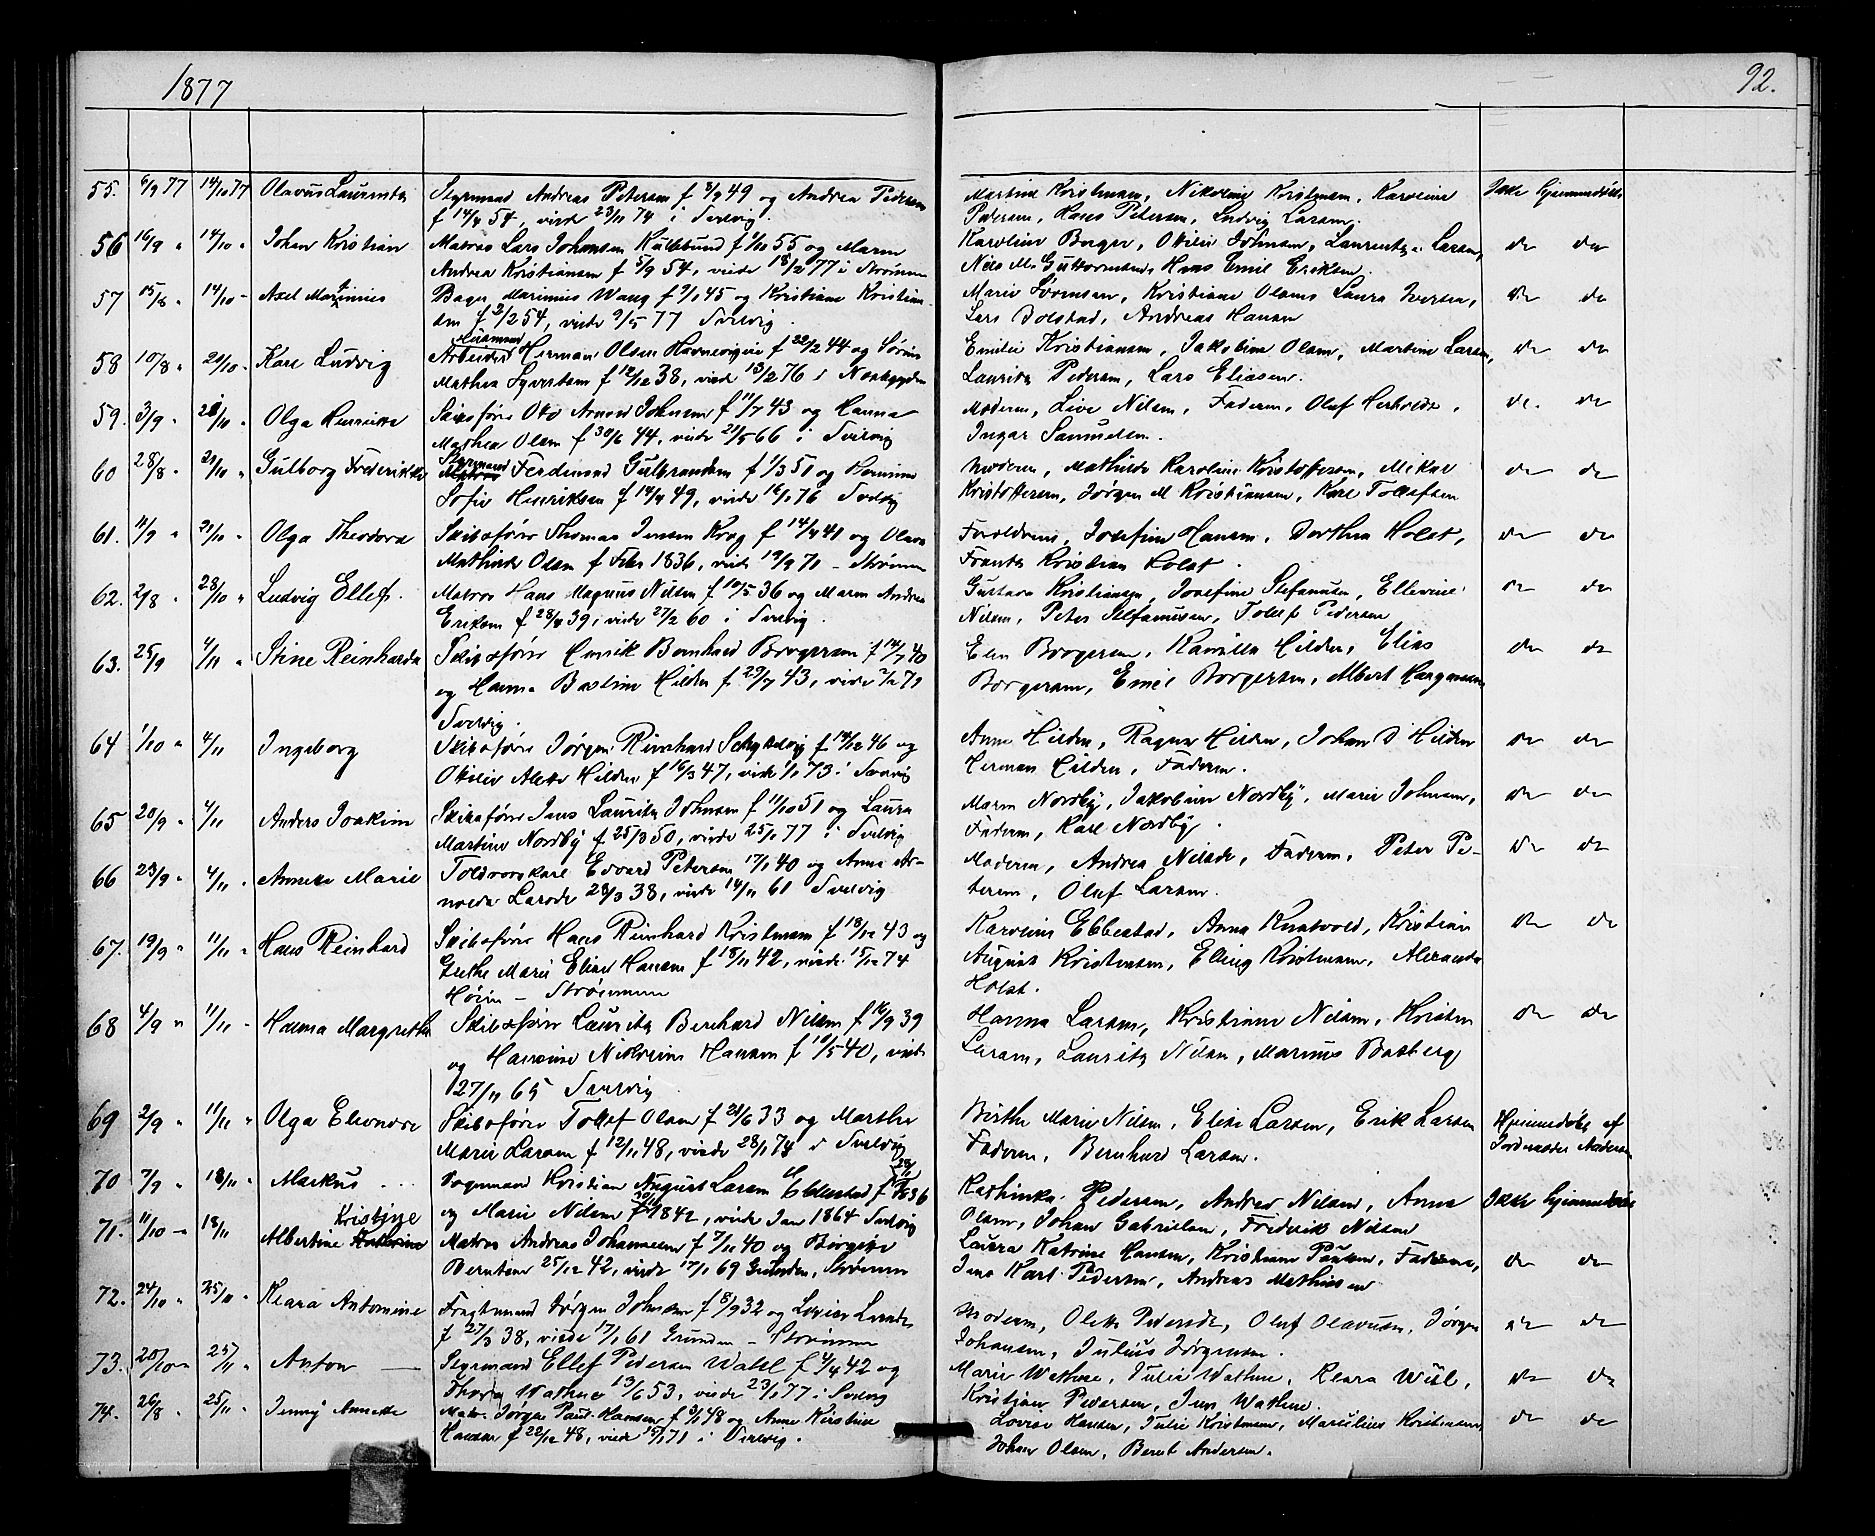 1877
92.
55. 6/9 77 14/10 77 Olavus Lauritz Styrmand Andreas Petersen f 8/9 49 og Andrea Pedersen Martine Kristensen, Nikoline Kristensen, Karoline Ikke Hjemmedøbt
f 14/4 54, viede 23/11 74 i Svelvig. Pedersen, Hans Petersen, Ludvig Larsen.
56 16/9 " 14/10 " Johan Kristian Matros Lars Johansen f 1/10 55 og Maren Karoline Borger, Otilie Johnsen, Larsen, do do
Andrea Kristiansen f 5/9 54, viede 18/2 77 i Strømmen Nils M. Guttormsen, Hans Emil Eriksen.
57 15/8 " 14/10 - Axel Marinius Bager Marinius Wang f 9/1 45 og Kristiane Kristian- Marie Svensen, Kristiane Olsen, Laura Iversen, do do
sen f 2/2 54, viede 9/5 77 Svelvig. Lars Dolstad, Andreas Hansen
58 10/8 " 21/10 - Karl Ludvig Arbeider Herman Olsen f 22/2 44 og Sørine Emilie Kristiansen, Jakobine Olsen, Martine Larsen, do do
Mathea Syvertsen f 12/12 38, viede 13/2 76 i Lauritz Pedersen, Lars Eliasen.
59. 3/9 " 21/10 " Olga Henrikke Skibsfører Otto Arnold Johnsen f 11/7 43 og Hanna Moderen, Live Nilsen, Faderen, Oluf Herholdt, do. do
Mathea Olsen f 30/6 44, viede 21/5 66 i Svelvig Ingar Samuelsen.
60 28/8 " 21/10 " Gulborg Frederikke Styrmand Ferdinand Gulbrandsen f 1/3 51 og Hermine Moderen, Mathilde Karoline Kristoffersen, Mikal do do
Sofie Henriksen f 14/4 49, viede 16/1 76 Svelvig Kristoffersen, Jørgen M Kristiansen, Karl Tollefsen
61. 11/9 " 21/10 " Olga Theodora Skibsfører Thomas Jensen Krog f 14/4 41 og Olava Forældrene, Josefine Hansen, Dorthea Holst, do do
Mathilde Olsen f Febr 1836, viede 19/9 71 - Strømmen Frants Kristian Holst.
62. 2/8 " 28/10 " Ludvig Ellef. Matros Hans Magnus Nilsen f 10/5 36 og Maren Andrea Gustava Kristiansen, Josefine Stefanusen, Ellevine do do
Eriksen f 28/4 39, viede 27/2 60 i Svelvig. Nilsen, Peter Stefanusen, Tollef Pedersen
63. 25/9 4/11 " Stine Reinharda Skibsfører Henrik Bernhard Borgersen f 14/7 40 Elen Borgersen, Kamilla Hilden, Elias do do
og Hanna Bastine Hilden f 29/7 43, viede 71 Borgersen, Emil Borgersen, Albert
Svelvig.
64 1/10 " 4/11 Ingeborg Skibsfører Jørgen Reinhard f 14/12 46 og Anne Hilden, Ragna Hilden, Johan D Hilden do do
Otilie Hilden f 16/3 47, viede 1/1 73 i Svelvig Herman Hilden, Faderen.
65 20/9 " 4/11 Anders Joakim Skibsfører Jens Lauritz Johnsen f 11/10 51 og Laura Maren Nordby, Jakobine Nordby, Marie Johnsen, do do
Martine Nordby f 25/3 50, viede 25/1 77 i Svelvig Faderen, Karl Nordby.
66 23/9 " 4/11 " Annette Marie Toldvorskarl Edvard Petersen 17/1 40 og Anna Ar- Moderen, Andrea Nilsen, Faderen, Peter Pe- do do
nolda Larsen 28/3 38, viede 14/11 61 Svelvig tersen, Oluf Larsen.
67. 19/9 " 11/11 " Hans Reinhard Skibsfører Hans Reinhard Kristensen f 18/12 43 og Karoline Ebbestad, Anna Knatvold, Kristian do do
Grethe Marie Elise Hansen f 18/11 42, viede 15/12 74 August Kristensen, Elling Kristensen, Alexander
Høien - Strømmen Holst.
68 4/9 " 11/11 - Hanna Margrethe Skibsfører Lauritz Bernhard Nilsen f 16/9 39 Hanna Larsen, Kristiane Nilsen, Kristen do do
og Hansine Nikoline Hansen f 10/5 40, viede Larsen, Lauritz Nilsen, Marius Basberg
27/11 65 Svelvig
69 2/9 " 11/11 " Olga Eleonore Skibsfører Tollef Olsen f 21/6 33 og Marthe Birthe Marie Nilsen, Elise Larsen, Erik Larsen Hjemmedøbt af
Marie Larsen f 12/11 48, viede 28/1 74 i Svelvig Faderen, Bernhard Larsen. Jordmoder Andersen
70 7/9 " 18/11 " Markus Kristian August Larsen Ebbestad f 36 Kathinka Pedersen, Andrea Nilsen, Anna Ikke Hjemmedøbt
og Marie Nilsen 1842, viede Jan 1864 Svelvig Olsen, Johan Gabrielsen, Frederik Nilsen
71. 11/10 - 18/11 Albertine Kristine Matros Andreas Johannesen f 7/11 40 og Birgitte Laura Katrine Hansen, Kristiane Paulsen, Faderen, do do
Berntsen 25/12 42, viede 17/1 69 Grunden, Strømmen Jens Karl Pedersen, Andreas Mathisen
72. 24/10 " 25/11 " Klara Antomine Fragtemand Jørgen Johnsen f 8/9 32 og Lovise Moderen, Oleth Pedersen, Oluf Olavusen, Jørgen do do
f 27/3 38, viede 17/1 61 Grunden - Strømmen Johansen, Julius Jørgensen.
73. 28/10 - 25/11 " Anton Styrmand Ellef Pedersen Wahl f 4/4 42 og Marie Wathne, Julie Wathne, Klara Wiil, do do
Thora Wathne 13/6 53, viede 23/1 77 i Svelvig Kristian Pedersen, Jens Wathne.
74. 26/8 " 25/11 " Jenny Annette Matr. Jørgen Paul Hansen f 3/1 48 og Anne Kirstine Lovise Hansen, Julie Kristensen, Marcelius Kristensen, do do
Hansen f 22/12 48, viede 15/1 71 i Svelvig. Johan Olsen, Bernt Andersen.